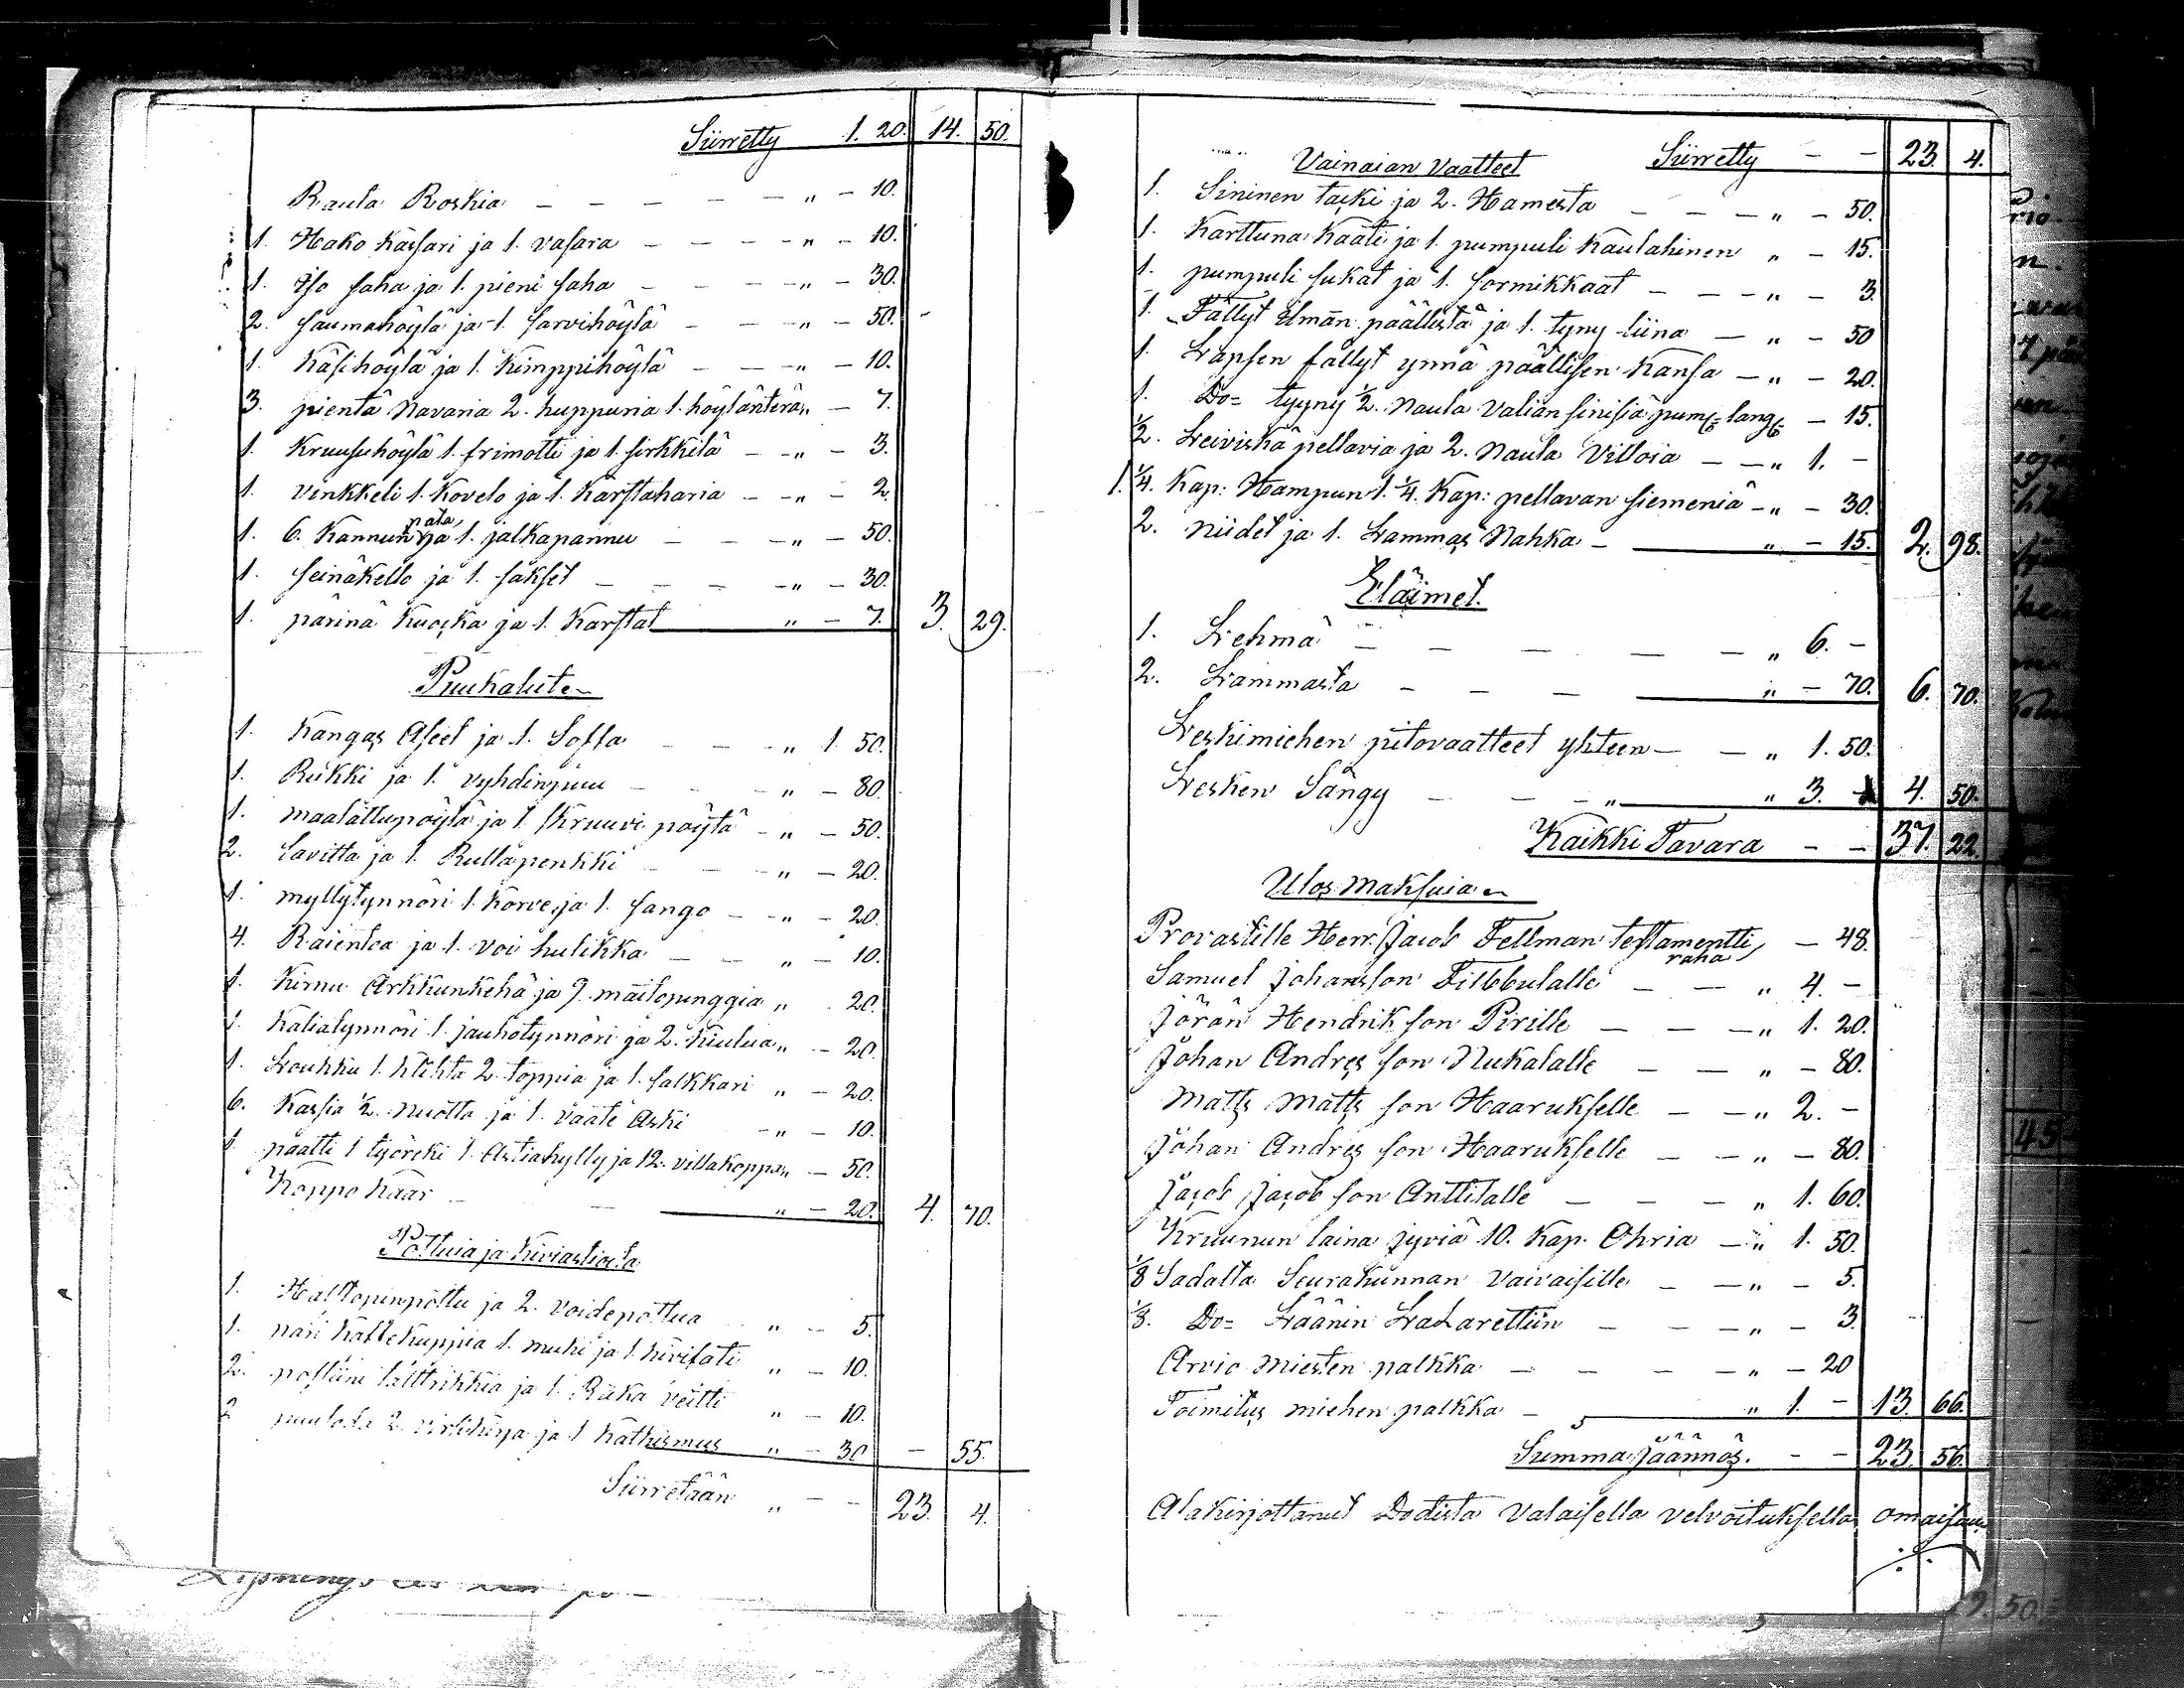 Siirretty 1. 20. 14. 50.
Rauta Roskia — — — — — „ — 10.
1. Hako kassari ja 1. vasara — — — „ — 10.
1. Iso saha ja 1. pieni saha — — — „ — 30.
2. saumahöylä ja 1. sarvihöylä — — „ — 50.
1. Käsihöylä ja 1. kimppihöylä — — „ — 10.
3. pientä Navaria 2. huppuria 1. höylänterä „ — 7.
1. Kruusuhöylä 1. frimotti ja 1. sirkkilä — „ — 3.
1. vinkkeli 1. Kovelo ja 1. Karstaharia — „ — 2.
1. 6. Kannun pata ja 1. jalkapannu — — „ — 50.
1. seinäkello ja 1. sakset — — — „ — 30.
1. pärinä Kuocka ja 1. Karstat „ — 7. 3. 29.
Puukaluten
1. Kangas Aseet ja 1. Soffa — — „ 1. 50.
1. Rukki ja 1. vyhdinpuu — — „ — 80.
1. maalattupöytä ja 1. skruuvi pöytä — „ — 50.
2. Lavitta ja 1. Rullapenkki — — „ — 20.
1. myllytynnöri 1. korve ja 1. sango — „ — 20.
4. Raientea ja 1. voi hulikka — — „ — 10.
1. Kirnu Arkkunkehä ja 9. maitopunggia „ 20.
1. Kaliatynnöri 1. jauhotynnöri ja 2. Kiulua „ — 20.
1. Louhku 1. hlihta 2. toppia ja 1. salkkari „ — 20.
6. Kassia 1/2. nuotta ja 1. vaate Aski — „ — 10.
1. paatti 1 työreki 1. Astiahylly ja 12. villakoppa „ — 50.
Koppo käär — — „ — 20. 4. 70.
Pottuia ja Kiviastioita
1. Halltopinpottu ja 2. voidepottua „ — 5.
1. pari Kaffekuppia 1. muki ja 1. kivifati „ — 10.
2. posliini tälttrikkiä ja 1. Räka veitti „ — 10.
2 1 Kathismus „ — 30 — 55.
Siirretään „ — — 23. 4.
Vainaian Vaatteet Siirretty — — 23. 4.
1. Sininen taski ja 2. Hamesta — — — „ — 50.
1. Karttuna Kaati ja 1. pumpuli Kaulahinen „ — 15.
1. pumpuli sukat ja 1. sormikkaat — — — „ — 3.
1. Fällyt Elman päällistä ja 1. tyny liina — „ — 50
1. Lapsen fällyt ynnä päällisen Kansa — „ — 20.
1. Do= tyyny 1/2. Naula Valian sinisiä pump= lang= — 15.
1/2. Leiviskä pellavia ja 2. Naula Villoia — — „ 1. —
1. 1/4. Kap: Hampun 1. 1/4. Kap: pellavan siemeniä — „ — 30.
2. Niidet ja 1. Lammas Nahka — „ — 15. 2. 98.
Eläimet.
1. Lehmä — — — — — „ 6. —
2. Lammasta — — — „ — 70. 6. 70.
Leskimiehen pitovaatteet yhteen — — „ 1. 50.
Lesken Sängy — — — „ „ 3. — 4. 50.
Kaikki Tavara — — 37. 22.
Ulos maksuia
Provastille Herr. Jacob Fellman testamentti raha — 48.
Samuel Johansson Tilbbulalle — — „ 4. —
Jörän Hendrik son Pirille — — — „ 1. 20.
Johan Andres son Nukalalle — — „ — 80.
Matts Matts son Haarukselle — — „ 2. —
Johan Andres son Haarukselle — — „ — 80.
Jacob Jacob son Anttilalle — — — „ 1. 60.
Kruunun laina jyviä 10. Kap. Ohria — „ 1. 50.
1/8 Sadalta Seurakunnan Vaivaisille — — „ — 5.
1/8. Do= Läänin Lazarettiin — — — „ — 3.
Arvio Miesten palkka — — — — „ — 20
Toimitus miehen palkka — „ 1. — 13. 66.
Summa Jäännös. — — 23. 56.
Alakirjottanut Dodista Valaisella velvoituksella omaisuu